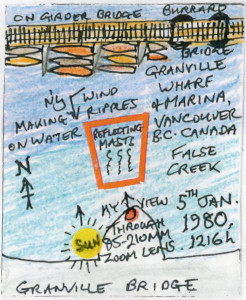 CN GIRDER BRIDGE BURRARD
BRIDGE
N'LY WIND
MAKING RIPPLES
ON WATER
GRANVILLE
WHARF
& MARINA,
VANCOUVER
B.C. CANADA
FALSE
CREEK
REFLECTING
MASTS
N
MY VIEW
THROUGH
85-210MM
ZOOM LENS
SUN
5TH JAN.
1980,
1216h
GRANVILLE BRIDGE